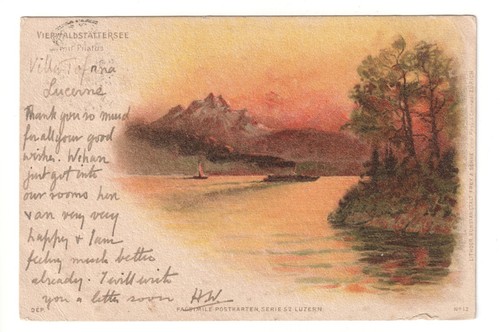 VIERWALDSTÄTTERSEE
mit Pilatus
Villa
Lucerne
Thank you so much
for all your good
wishes. We have
just got into
our rooms here
& are very very
happy & I am
feeling much better
already. I will write
you a letter soon HW
DEP.
FACSIMILE-POSTKARTEN, SERIE LUZERN.